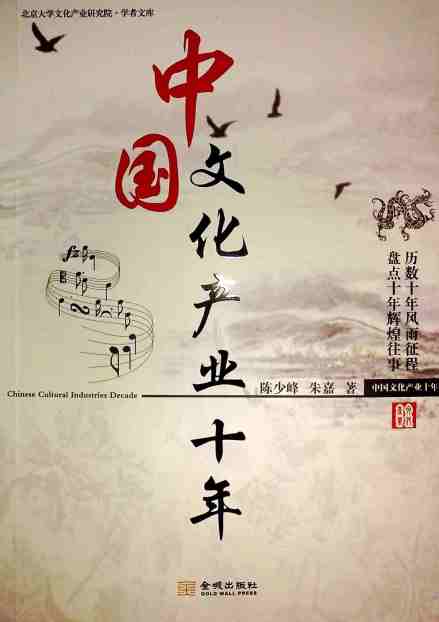 北京大学文化产业研究院·学者文库
中国
文化产业十年
历数十年风雨征程
盘点十年辉煌往事
陈少峰 朱嘉 著
中国文化产业十年
Chinese Cultural Industries Decade
金城出版社
GOLD WALL PRESS